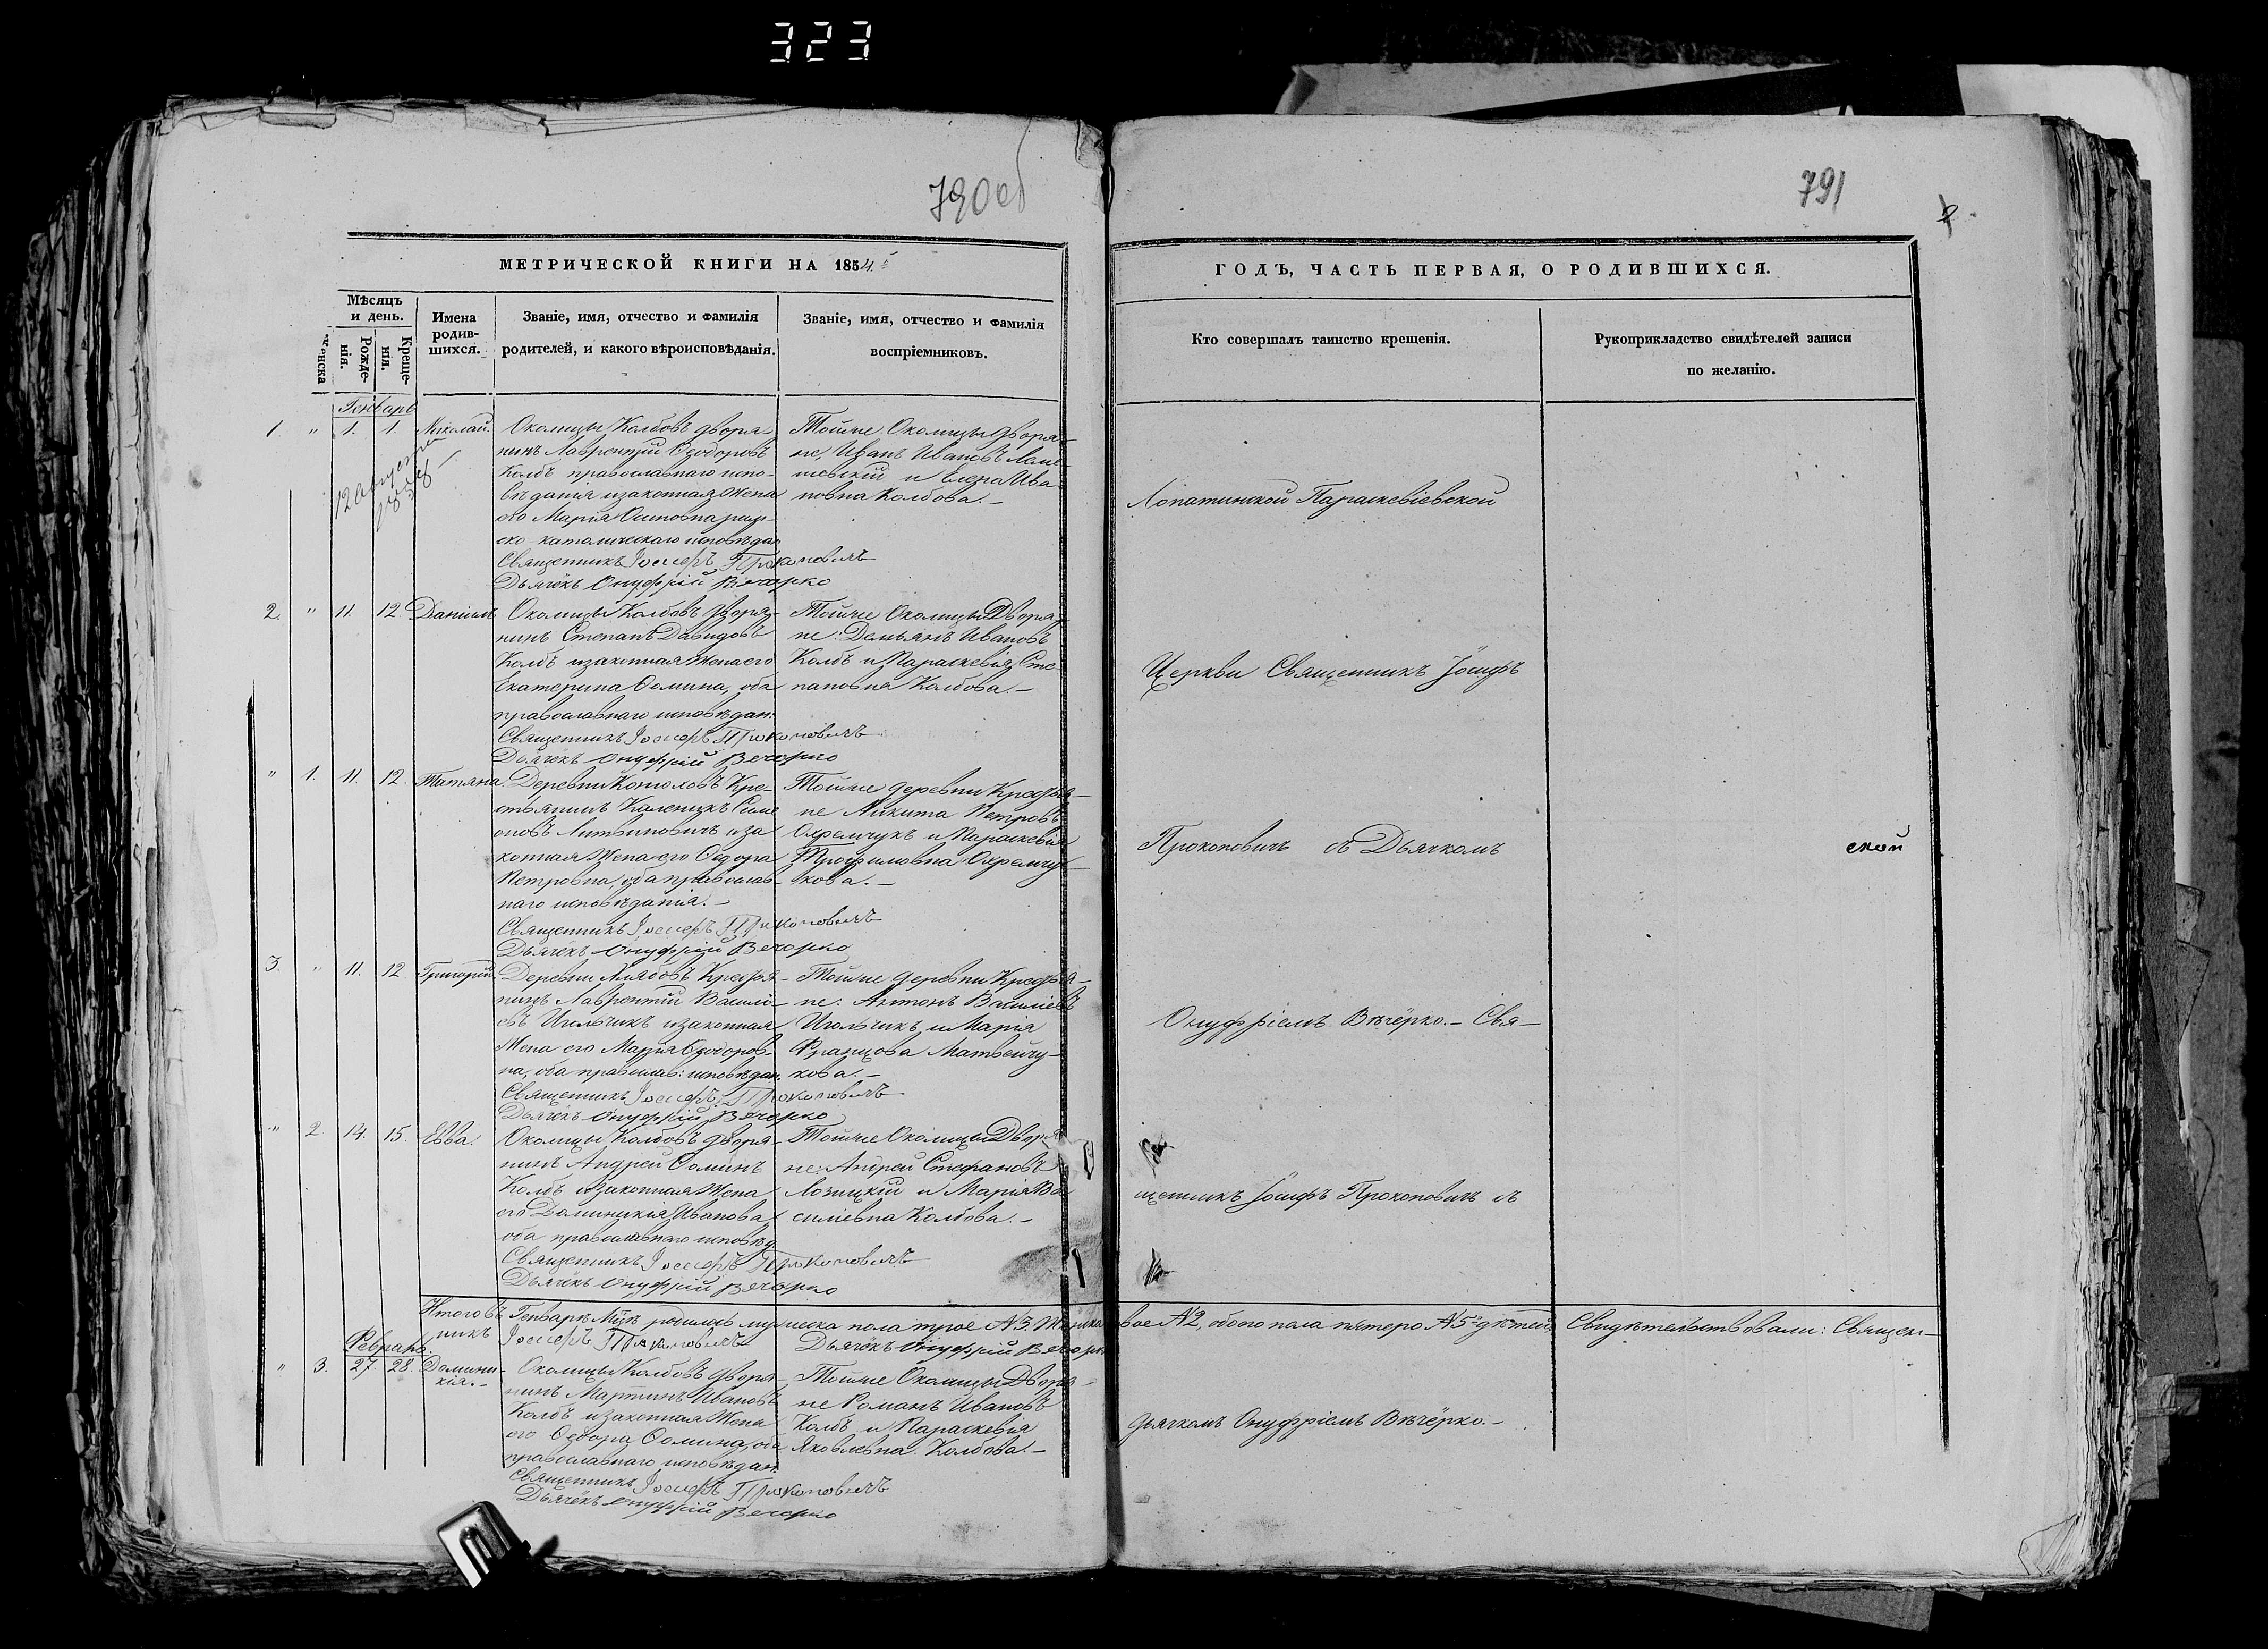 323
790об
791
2
МЕТРИЧЕСКОЙ КНИГИ НА 1854.
ГОДЪ, ЧАСТЬ ПЕРВАЯ, О РОДИВШИХСЯ.
Мѣсяцъ и день.
Женска
Рожде-нія.
Креще-нія.
Имена родив-шихся.
Званіе, имя, отчество и фамилія
родителей, и какого вѣроисповѣданія.
Званіе, имя, отчество и фамилія
воспріемниковъ.
Кто совершалъ таинство крещенія.
Рукоприкладство свидѣтелей записи
по желанію.
Генварь
1. " 1. 1. Николай.
Околицы Колбовъ дворя-
нинъ Лаврентій Ѳеодоровъ
Колбъ православнаго испо-
вѣданія изаконная Жена
его Марія Осиповна рим-
ско-католическаго исповѣдан.
Священникъ Іосифъ Прокоповичъ
Дьячёкъ Онуфрій Вечорко
Тойже Околицы дворя-
не, Иванъ Ивановъ
и Елена Ива-
новна Колбова.-
2. " 11. 12. Даніилъ
Околицы Колбовъ дворя-
нинъ Степанъ Давидовъ
Колбъ изаконная Жена его
Екатерина Ѳомина, оба
православнаго исповѣдан:
Священникъ Іосифъ Прокоповичъ
Дьячёкъ Онуфрій Вечорко
Тойже Околицы Дворя-
не: Демьянъ Ивановъ
Колбъ и Параскевія Сте-
пановна Колбова.-
" 1. 11. 12. Татяна.
Деревни Кре-
стьянинъ Каленикъ Симе
оновъ Литвиновичъ иза
конная Жена его Ѳедора
Петровна, оба православ-
наго исповѣданія.-
Священникъ Іосифъ Прокоповичъ
Дьячёкъ Онуфрій Вечорко
Тойже деревни Крестья-
не Никита Петровъ
Охремчукъ и Параскевія
Трофимовна Охремчу-
кова.-
3. " 11. 12 Григорій.
Деревни Крестья-
нинъ Лаврентій Василі-
евъ Игольчикъ изаконная
Жена его Марія Ѳеодоров-
на, оба православ: исповѣдан.
Священникъ Іосифъ Прокоповичъ
Дьячёкъ Онуфрій Вечорко
Тойже деревни Крестья-
не: Антонъ Василіевъ
Игольчикъ и Марія
Францова Матвейчу-
кова.-
" 2. 14. 15. Евва.
Околицы Колбовъ дворя-
нинъ Андрей Ѳоминъ
Колбъ изаконная Жена
его Доминикія Иванова
оба православнаго исповѣд.
Священникъ Іосифъ Прокоповичъ
Дьячёкъ Онуфрій Вечорко
Тойже Околицы Дворя
не: Андрей Стефановъ
Лозицкій и Марія Ва
силіевна Колбова.-
Итого въ Генварѣ М-цѣ родилось мужеска пола трое №3, Женска двое №2, обоего пола пятеро №5 дѣтей. Свидѣтельствовали: Священ-
никъ Іосифъ Прокоповичъ Дьячёкъ Онуфрій Вечорко
Февраль.
" 3. 27. 28. Домини-
кія.-
Околицы Колбовъ дворя-
нинъ Мартинъ Ивановъ
Колбъ изаконная Жена
его Ѳедора Ѳомина, оба
православнаго исповѣдан.
Священникъ Іосифъ Прокоповичъ
Дьячёкъ Онуфрій Вечорко
Тойже Околицы Дворя-
не Романъ Ивановъ
Колбъ и Параскевія
Яковлевна Колбова.-
Лопатинской Параскевіевской
Церкви Священникъ Іосифъ
Прокоповичъ съ Дьячкомъ
ской
Онуфріемъ Вѣчёрко.- Свя-
щенникъ Іосифъ Прокоповичъ съ
дьячкомъ Онуфріемъ Вѣчёрко.-